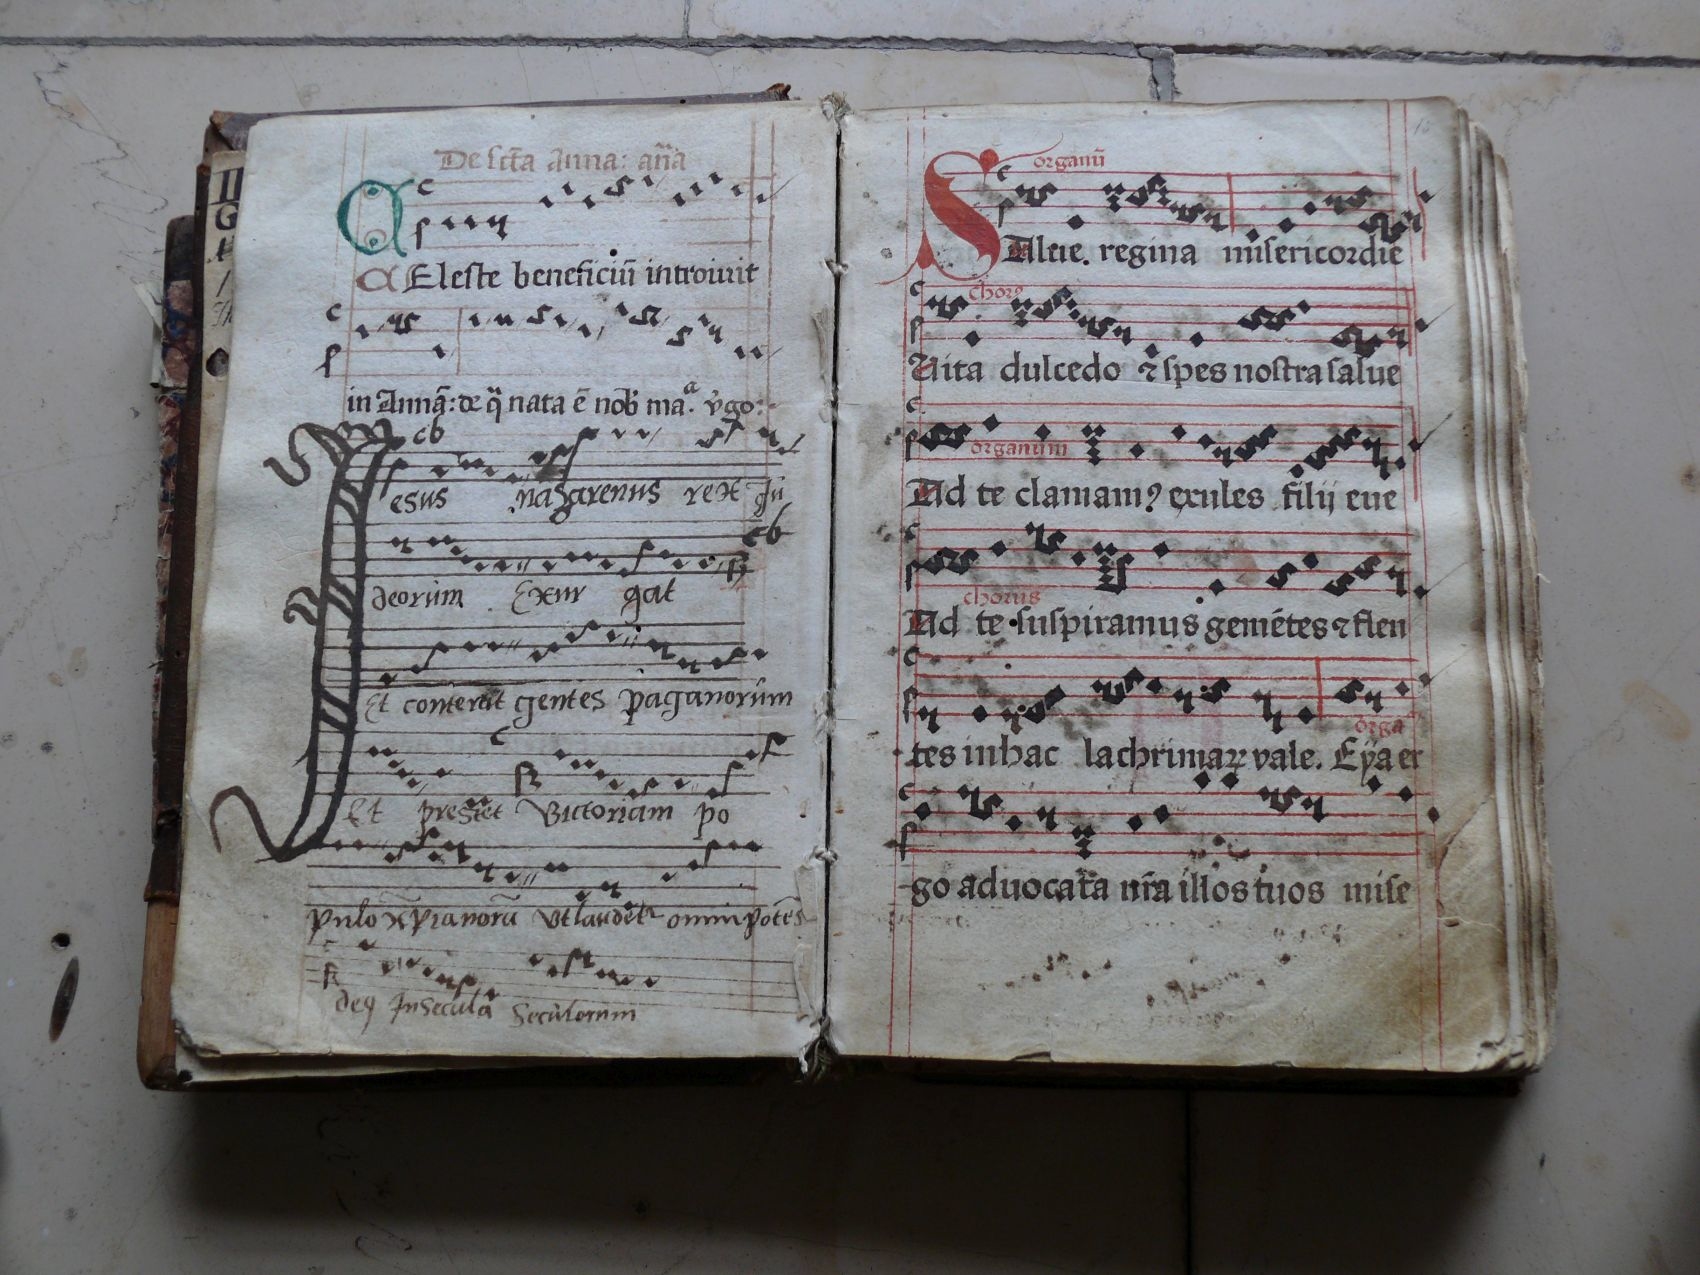 De sct̄a Anna: añā
CEleste beneficiū introiuit
in Annā: de q̄ nata ē nob̄ ma.ª v̄go:
Jesus nazarenus rex Ju
deorum Exur gat
Et conterat gentes paganorūm
Et prestet Victoriam po
pulo xp̄ianorū Vt laudet omnipotēs
deꝯ Jn seculā Seculorum
organū
SAlue. regina misericordie
chorꝯ
Uita dulcedo ⁊ spes nostra salue
organum
Ad te clamamꝯ exules filij eue
chorus
Ad te suspiramus gemētes ⁊ flen
tes in hac lachrimaꝝ vale. Eya er
orga
go aduocata nr̄a illos tuos mise